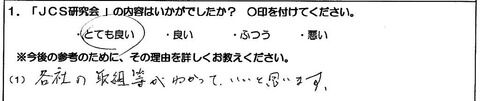 1．「ＪＣＳ研究会」の内容はいかがでしたか？ ○印を付けてください。
・とても良い ・良い ・ふつう ・悪い
※今後の参考のために、その理由を詳しくお教えください。
(1) 各社の取組等がわかって、いいと思います。